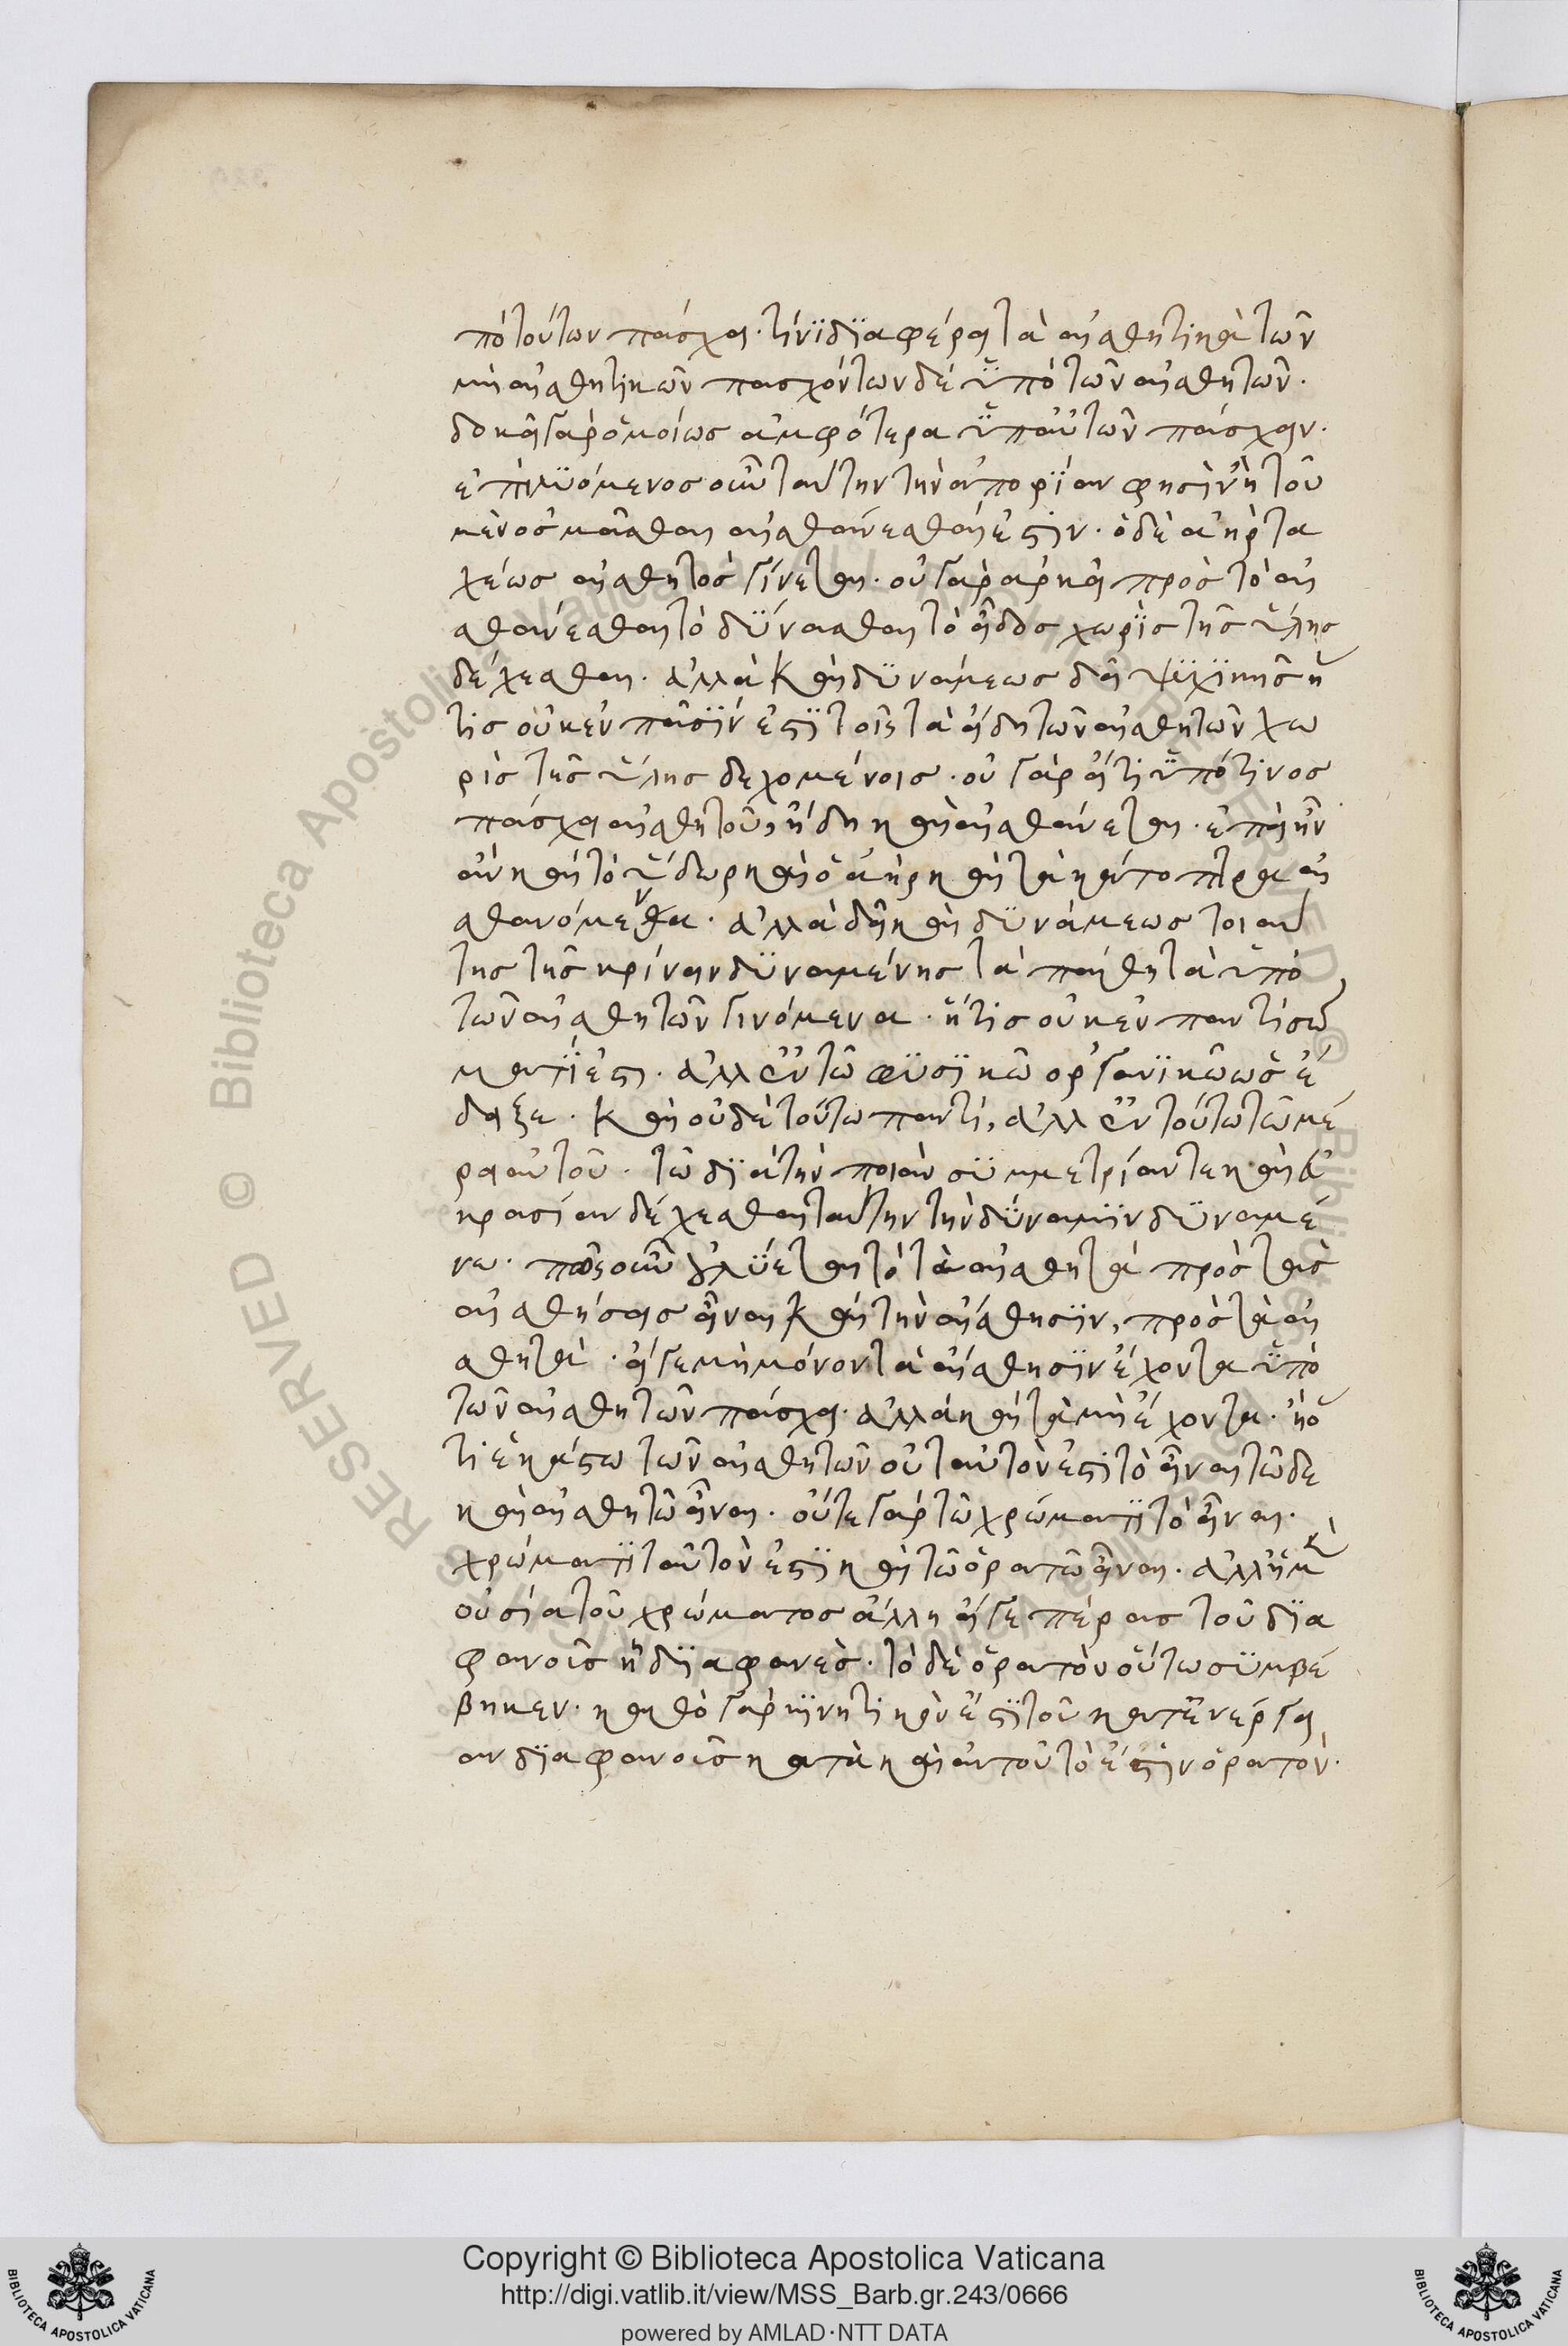 πὸ τούτων πάσχει. τίνϊ δϊαφέρει τὰ αἰσθητικὰ τῶν
μὴ αἰσθητικῶν πασχόντων δὲ ὑπὸ τῶν αἰσθητῶν.
δοκεῖ γὰρ ὁμοίως ἀμφότερα ὑπ αὐτῶν πάσχειν.
ἐπιλϋόμενος οὖν ταύτην τὴν ἀπορϊαν φησὶν ἢ τοῦ
μὲν ὀσμᾶσθαι αἰσθάνεσθαί ἐστιν. ὁ δὲ ἀὴρ τα
χέως αἰσθητὸς γίνεται. οὐ γὰρ ἀρκεῖ πρὸς τὸ αἰ
σθάνεσθαι τὸ δΰνασθαι τὸ εἶδος χωρὶς τῆς ὕλης
δέχεσθαι. ἀλλὰ καὶ δϋνάμεως δεῖ ψϋχϊκῆς ἥ
τις οὐκ ἐν πᾶσϊν ἐστϊ τοῖς τὰ εἴδη τῶν αἰσθητῶν χω
ρὶς τῆς ὕλης δεχομένοις. οὐ γὰρ εἴ τι ὑπό τινος
πάσχει αἰσθητοῦ, ἤδη καὶ αἰσθάνεται. ἐπεὶ ἦν
ἂν καὶ τὸ ὕδωρ καὶ ὁ ἀὴρ καὶ τὰ κάτοπτρα αἰ
σθανόμενα. ἀλλὰ δεῖ καὶ δϋνάμεως τοιαύ
της τῆς κρίνειν δϋναμένης τὰ πάθη τὰ ὑπὸ
τῶν αἰσθητῶν γινόμενα. ἥτις οὐκ ἐν παντὶ σώ
ματΐ ἐστι. ἀλλ ἐν τῶ φϋσϊκῶ ὀργανϊκῶ ὡς ἔ
δειξε. καὶ οὐδὲ τούτω παντί, ἀλλ ἐν τούτω τῶ μέ
ρει αὐτοῦ. τῶ δϊὰ τὴν ποιὰν σϋμμετρίαν τε καὶ εὐ
κρασίαν δέχεσθαι ταύτην τὴν δΰναμϊν δϋναμέ
νω. πῶς οὖν λΰεται τὸ τὰ αἰσθητὰ πρὸς τὰς
αἰσθήσεις εἶναι καὶ τὴν αἴσθησϊν, πρὸς τὰ αἰ
σθητά. εἴ γε μὴ μόνον τὰ αἴσθησϊν ἔχοντα ὑπὸ
τῶν αἰσθητῶν πάσχει. ἀλλὰ καὶ τὰ μὴ ἔχοντα. ἢ ὅ
τι ἑκάστω τῶν αἰσθητῶν οὐ ταὐτόν ἐστι τὸ εἶναι τῶδε
καὶ αἰσθητῶ εἶναι. οὔτε γὰρ τῶ χρώματϊ τὸ εἶναι.
χρώματϊ ταὐτόν ἐστϊ καὶ τῶ ὁρατῶ εἶναι. ἀλλ ἡ μὲν
οὐσία τοῦ χρώματος ἄλλη εἴ γε πέρας τοῦ δϊα
φανοῦς ἢ δϊαφανὲς. τὸ δὲ ὁρατὸν οὕτω σϋμβέ
βηκεν. καθὸ γὰρ κϊνητικόν ἐστϊ τοῦ κατ ἐνέργει
αν δϊαφανοῦς κατὰ καὶ αὐτοῦ τό ἐστιν ὁρατόν.
Copyright © Biblioteca Apostolica Vaticana
http://digi.vatlib.it/view/MSS_Barb.gr.243/0666
powered by AMLAD·NTT DATA